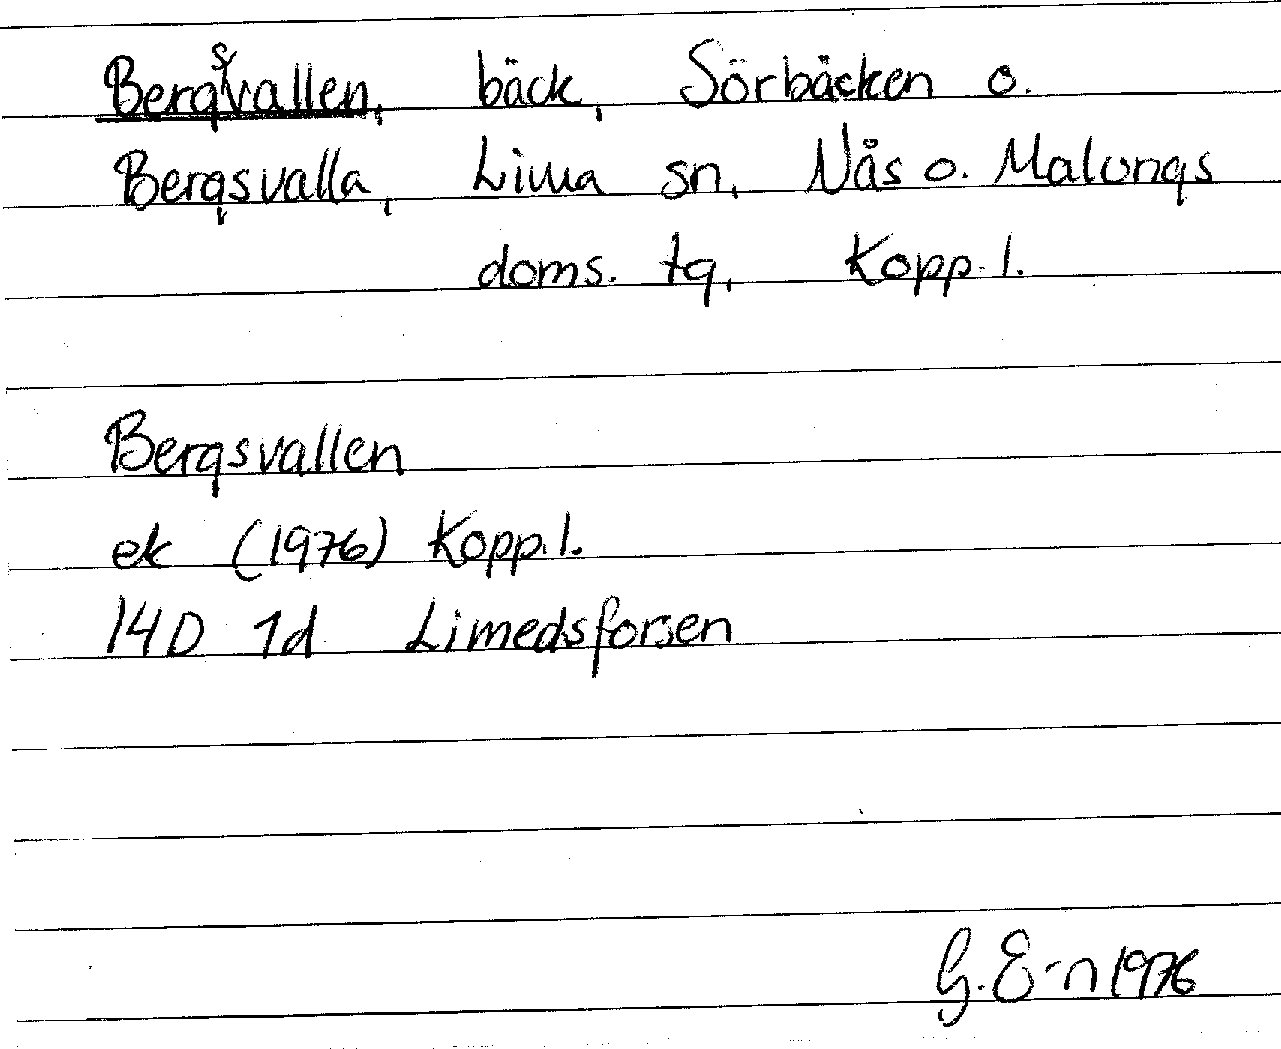 Bergsvallen, bäck, Sörbäcken o.
Bergsvalla, Lima sn, Nås o. Malungs
doms. tg, Kopp. l.
Bergsvallen
ek (1976) Kopp. l.
14D 1d Limedsforsen
G. E-n 1976